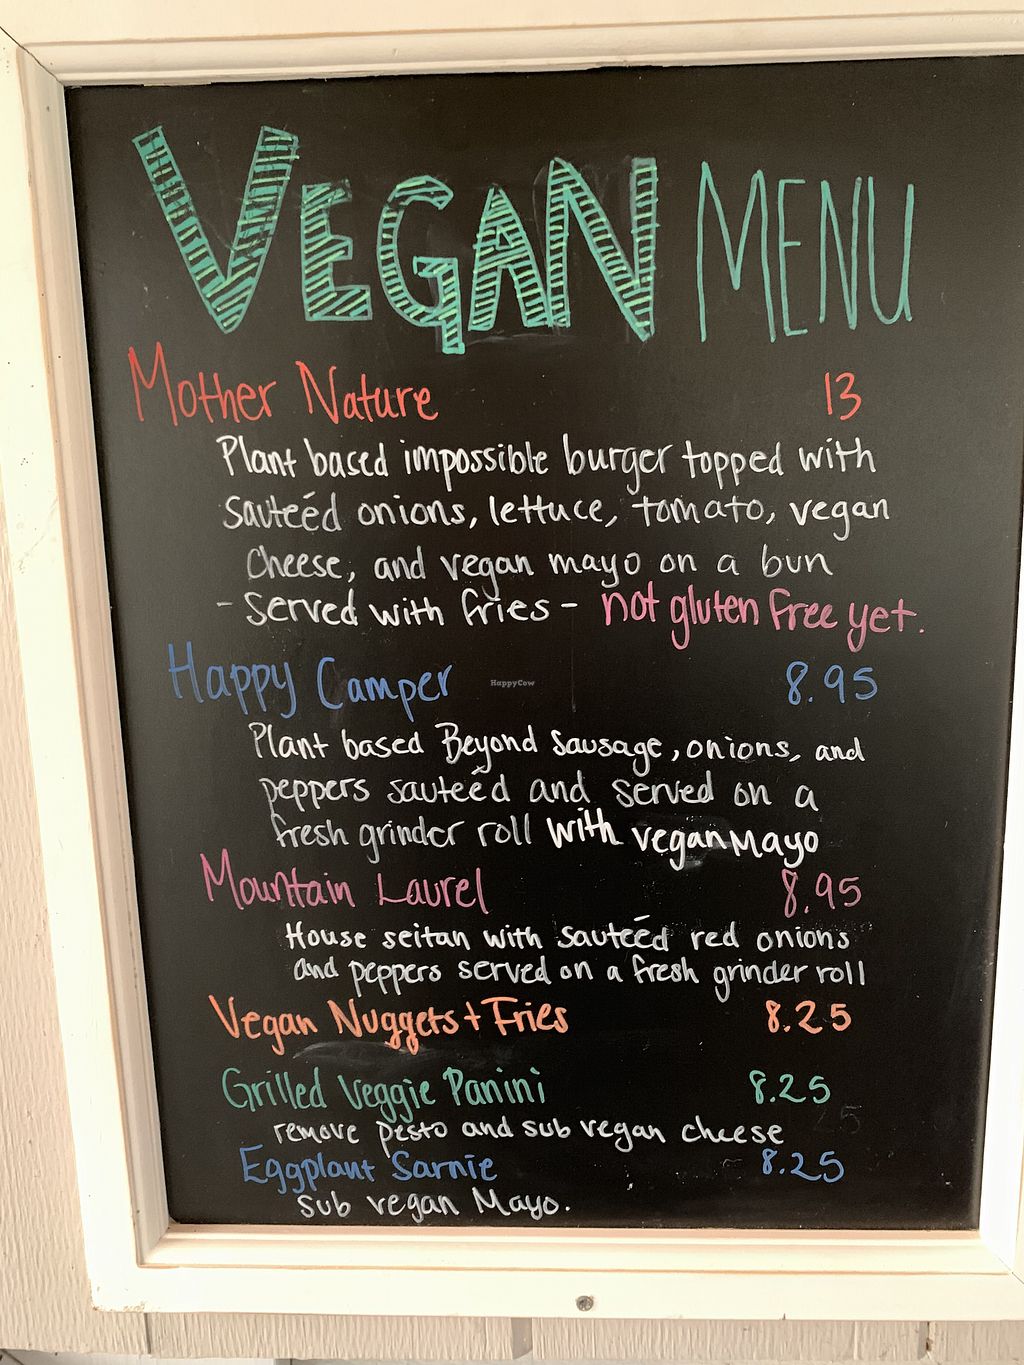 VEGAN MENU
Mother Nature 13
Plant based impossible burger topped with
sauteéd onions, lettuce, tomato, vegan
Cheese, and vegan mayo on a bun
- Served with fries - not gluten free yet.
Happy Camper 8.95
HappyCow
Plant based Beyond Sausage, onions, and
peppers sauteéd and served on a
fresh grinder roll with vegan Mayo
Mountain Laurel 8.95
House seitan with sauteéd red onions
and peppers served on a fresh grinder roll
Vegan Nuggets + Fries 8.25
Grilled Veggie Panini 8.25
remove pesto and sub vegan cheese
Eggplant Sarnie 8.25
sub vegan Mayo.